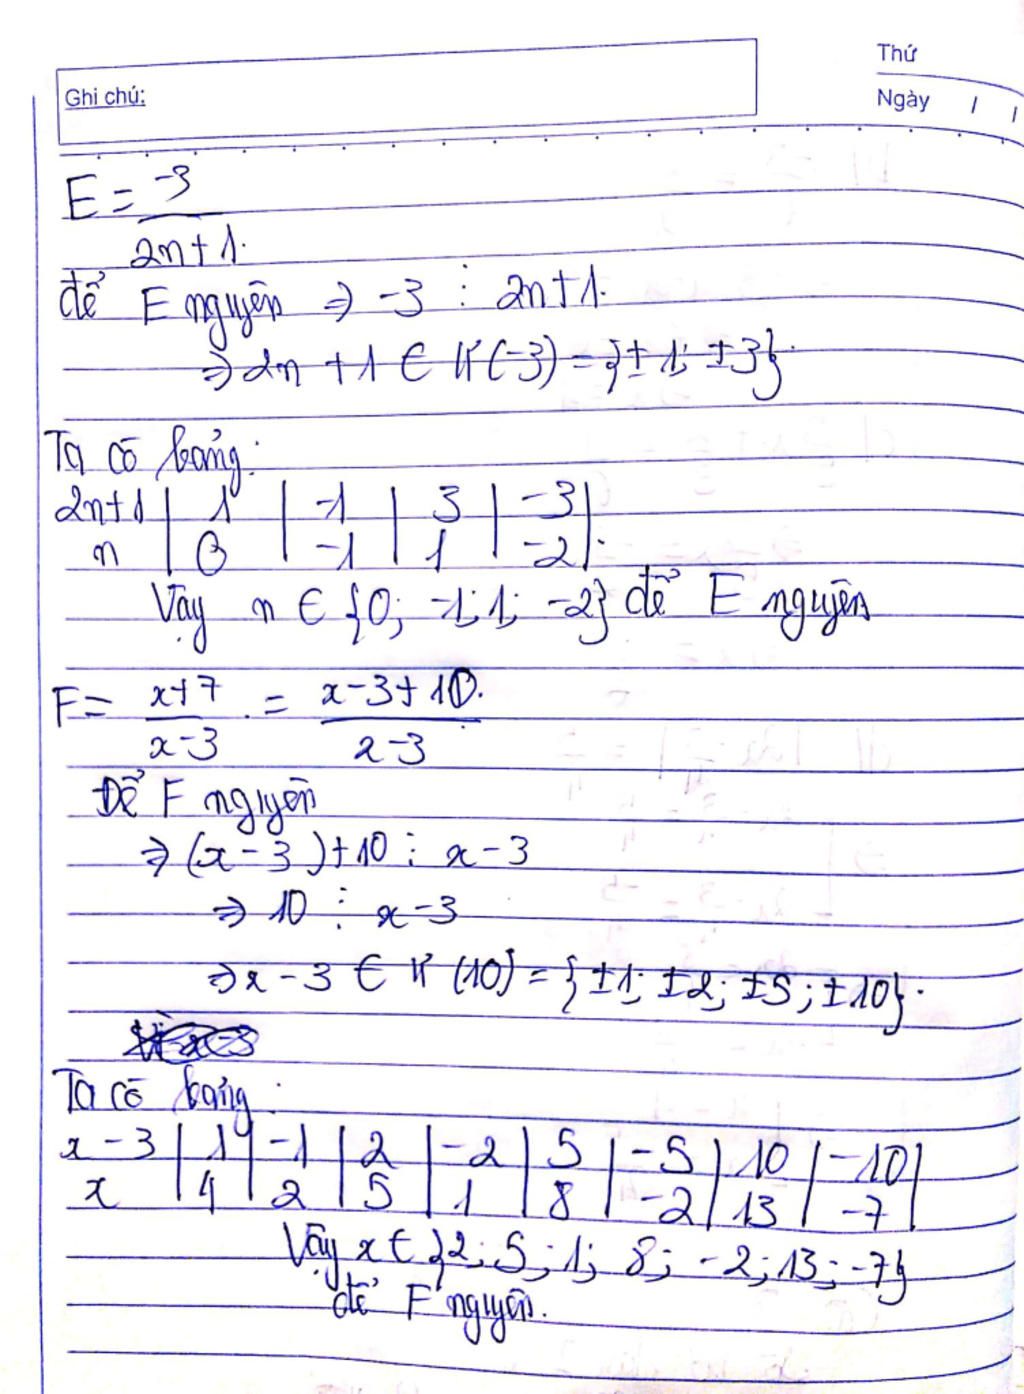 Thứ
Ghi chú:
Ngày / /
E = -3
2n+1.
để E nguyên ⇒ -3 ⋮ 2n+1.
⇒ 2n + 1 ∈ Ư(-3) = {±1; ±3}.
Ta có bảng:
2n+1 | 1 | -1 | 3 | -3 |
n | 0 | -1 | 1 | -2 | .
Vậy n ∈ {0; -1; 1; -2} để E nguyên
F = x+7 / x-3 = x-3+10. / x-3
Để F nguyên
⇒ (x-3)+10 ⋮ x-3
⇒ 10 ⋮ x-3
⇒ x-3 ∈ Ư(10) = {±1; ±2; ±5; ±10}.
Ta có bảng:
x-3 | 1 | -1 | 2 | -2 | 5 | -5 | 10 | -10 |
x | 4 | 2 | 5 | 1 | 8 | -2 | 13 | -7 |
Vậy x ∈ {2; 5; 1; 8; -2; 13; -7}
để F nguyên.